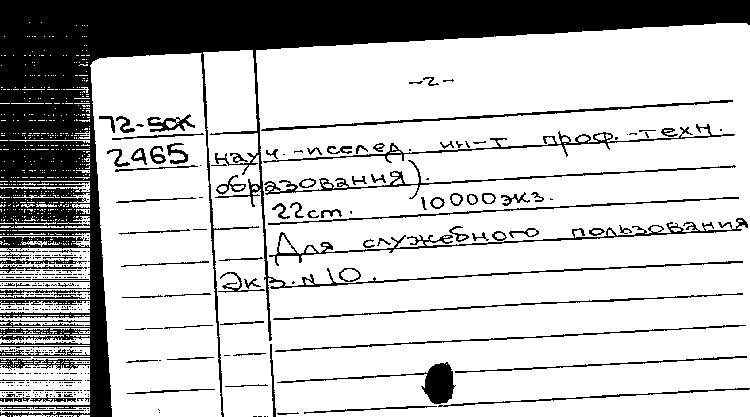 -2-
72-50К
2465 науч.-исслед. ин-т проф.-техн.
образования).
22см. 10000экз.
Для служебного пользования
Экз. N 10.